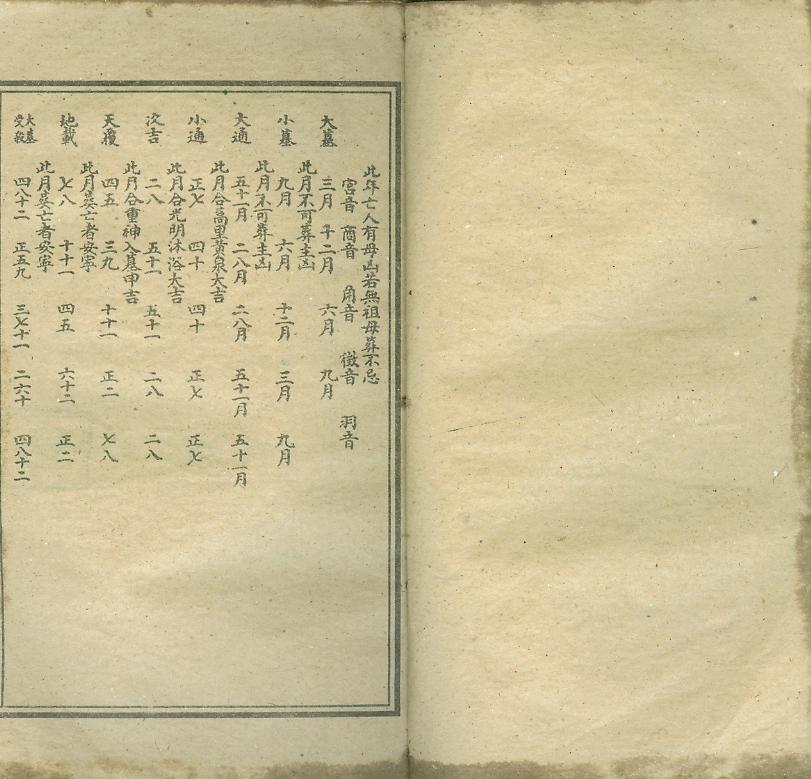 此年亡人有母凶若無祖母葬不忌
宮音 商音 角音 徵音 羽音
大墓 三月 十二月 六月 九月
此月不可葬主凶
小墓 九月 六月 十二月 三月 九月
此月不可葬主凶
大通 五十一月 二八月 二八月 五十一月 五十一月
此月合萬里黄泉大吉
小通 正七 四十 四十 正七 正七
此月合光明沐浴大吉
次吉 二八 五十一 五十一 二八 二八
此月合重神入墓甲吉
天覆 四五 三九 十十一 正二 七八
此月葬亡者安寧
地載 七八 十十一 四五 六十二 正二
此月葬亡者安寧
大墓受殺 四八十二 正五九 三七十一 二六十 四八十二